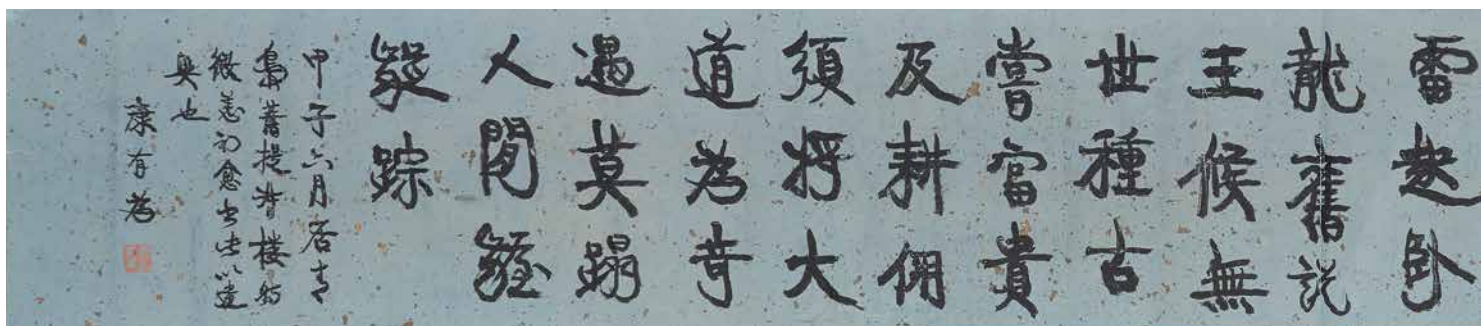 雷起卧
龍舊説
王候無
世種古
嘗富貴
及耕佣
須將大
道為奇
遇莫蹋
人間齷
齪踪
甲子六月居青
島舊提督樓
微恙初愈書此以遣
興也
康有為